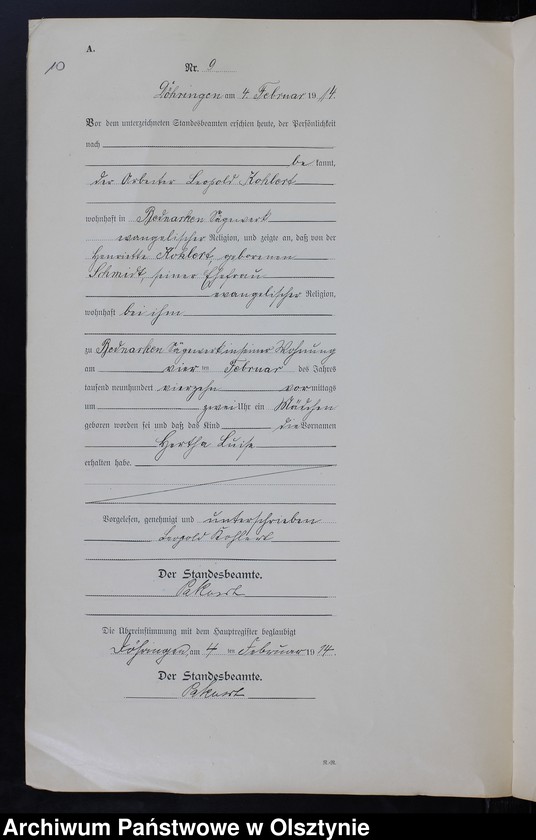 A.
10
Nr. 9
Döhringen am 4. Februar 1914.
Vor dem unterzeichneten Standesbeamten erschien heute, der Persönlichkeit
nach
be kannt,
der Arbeiter Leopold Kohlert
wohnhaft in Bednarken Sägewerk
evangelischer Religion, und zeigte an, daß von der
Henriette Kohlert, geborenen
Schmidt, seiner Ehefrau
evangelischer Religion,
wohnhaft bei ihm
zu Bednarken Sägewerk in seiner Wohnung
am vier ten Februar des Jahres
tausend neunhundert vierzehn vor mittags
um zwei Uhr ein Mädchen
geboren worden sei und daß das Kind die Vornamen
Hertha Luise
erhalten habe.
Vorgelesen, genehmigt und unterschrieben
Leopold Kohlert
Der Standesbeamte.
Die Übereinstimmung mit dem Hauptregister beglaubigt
Döhringen, am 4 ten Februar 1914.
Der Standesbeamte.
Archiwum Państwowe w Olsztynie